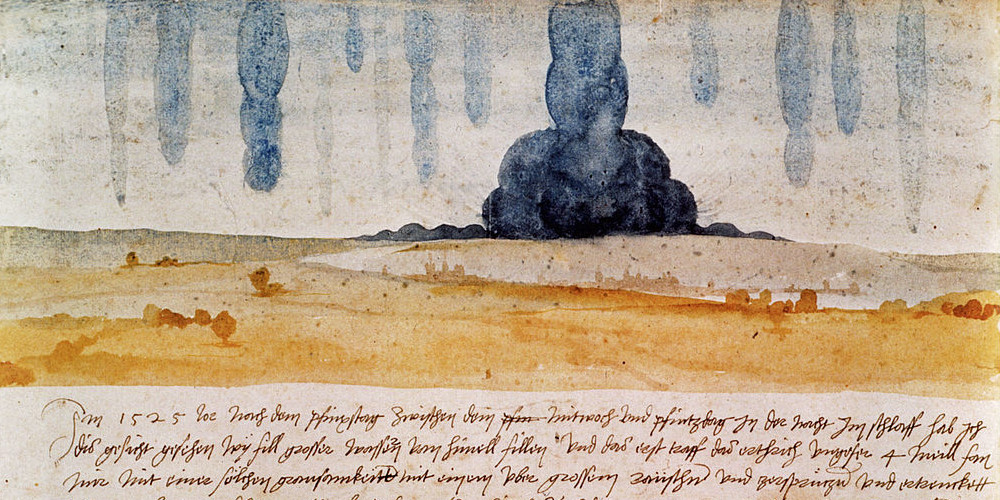 Im 1525 Jor noch dem pfinxstag zwischen dem pfin Mitwoch und pfintzdag In der nacht Im schlaff hab ich
dis gesicht gesehen wy fill grosser wassern vom himell fillen Und das erst traff das erthrich ungefer 4 meill fan
mir mit einer solchen grausamkeitt mit einem uber grossem raüschn und zersprützn und ertrenckett